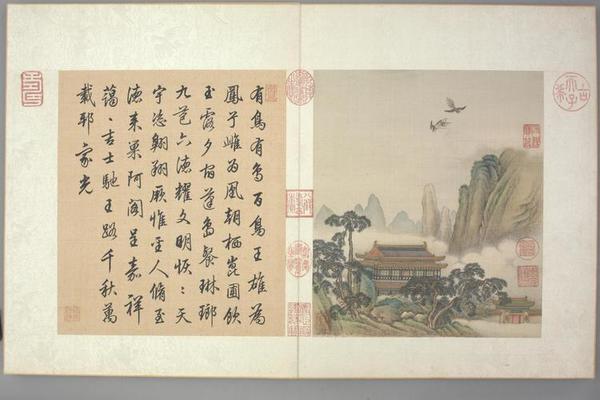 有鳥有鳥百鳥王雄為
鳳子雌為凰朝栖崑圃飲
玉露夕宿蓬島餐琳瑯
九苞六德耀文明恢〻天
宇恣翱翔厥惟至人脩至
德来巢阿閣呈嘉祥
藹〻吉士馳王路千秋萬
載邦家光
古希天子